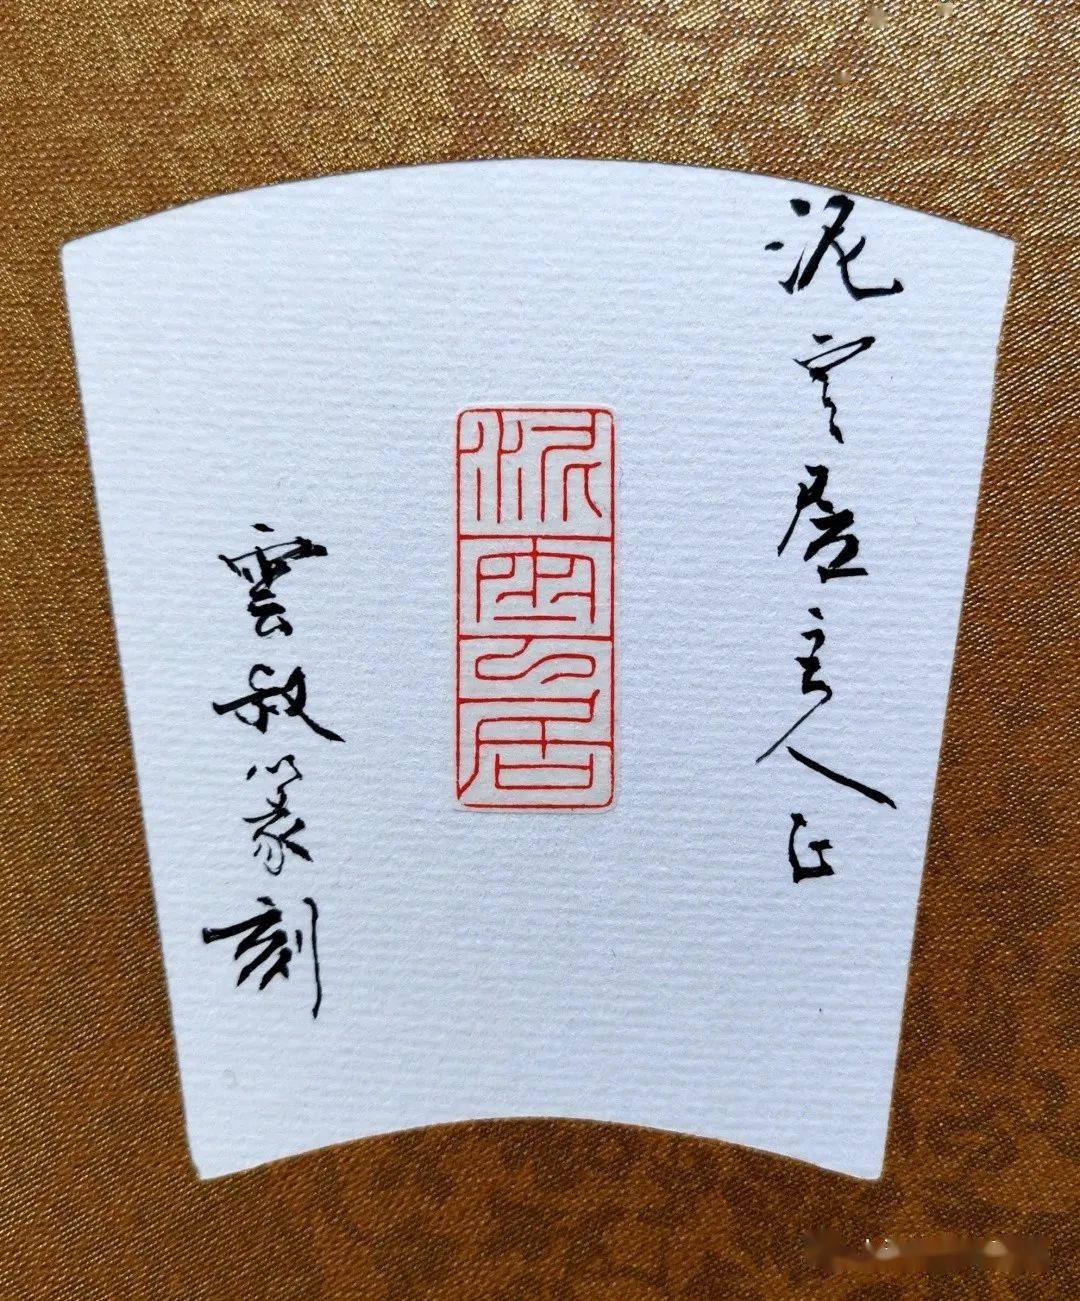 泥居主人正
泥居
雲叔篆刻